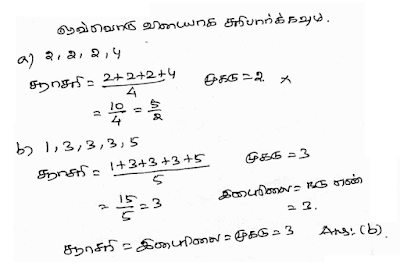 ஒவ்வொரு விடையாக சரிபார்க்கவும்.
a) 2, 2, 2, 4
சராசரி = 2+2+2+4/4 முகடு = 2 x
= 10/4 = 5/2
b) 1, 3, 3, 3, 5
சராசரி = 1+3+3+3+5/5 முகடு = 3
= 15/5 = 3 இடைநிலை = நடு எண்
= 3.
சராசரி = இடைநிலை = முகடு = 3 Ans: (b).